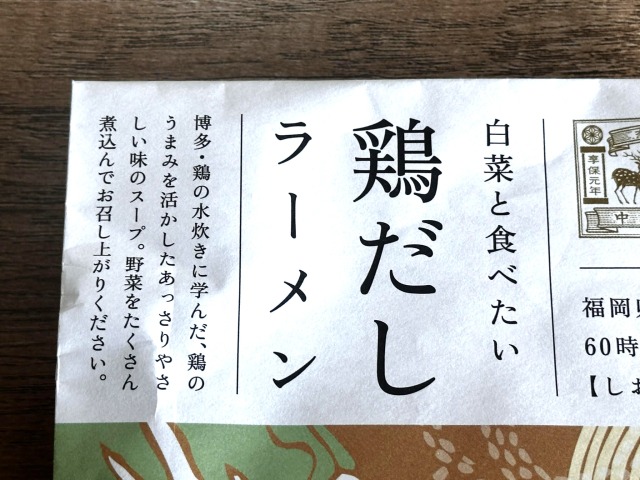 享保元年
中
福岡県
60時
【しお
白菜と食べたい
鶏だし
ラーメン
博多・鶏の水炊きに学んだ、鶏の
うまみを活かしたあっさりやさ
しい味のスープ。野菜をたくさん
煮込んでお召し上がりください。